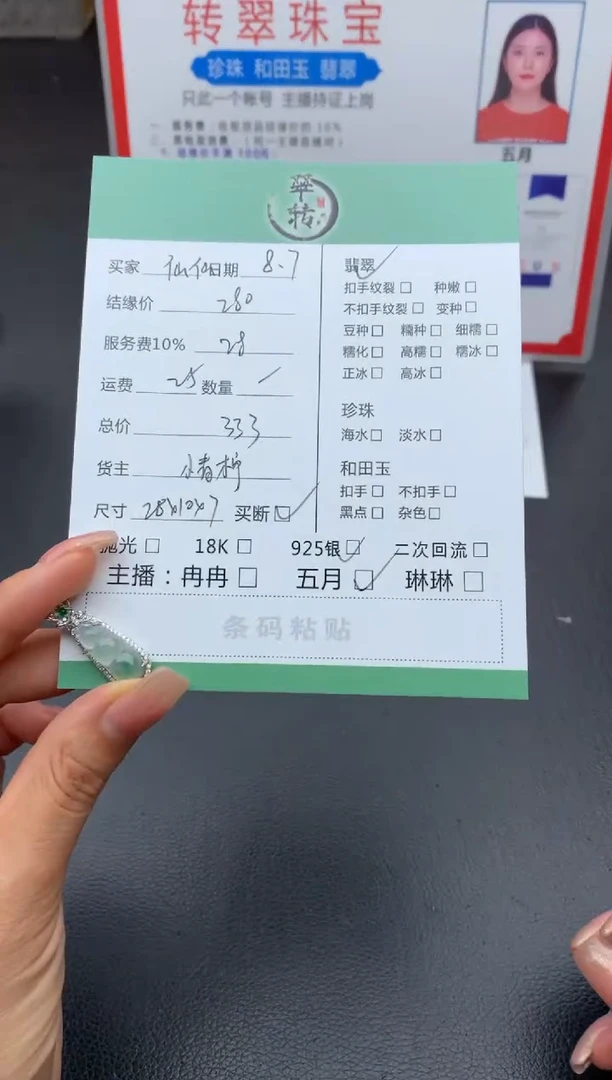 转翠珠宝
珍珠 和田玉 翡翠
只此一个帐号 主播持证上岗
五月
翠转
买家 仙仙 日期 8.7
结缘价 280
服务费10% 28
运费 25 数量
总价 333
货主 小青柠
尺寸 28x10x7 买断□
翡翠
扣手纹裂□ 种嫩□
不扣手纹裂□ 变种□
豆种□ 糯种□ 细糯□
糯化□ 高糯□ 糯冰□
正冰□ 高冰□
珍珠
海水□ 淡水□
和田玉
扣手□ 不扣手□
黑点□ 杂色□
抛光□ 18K□ 925银□ 二次回流□
主播：冉冉□ 五月□ 琳琳□
条码粘贴